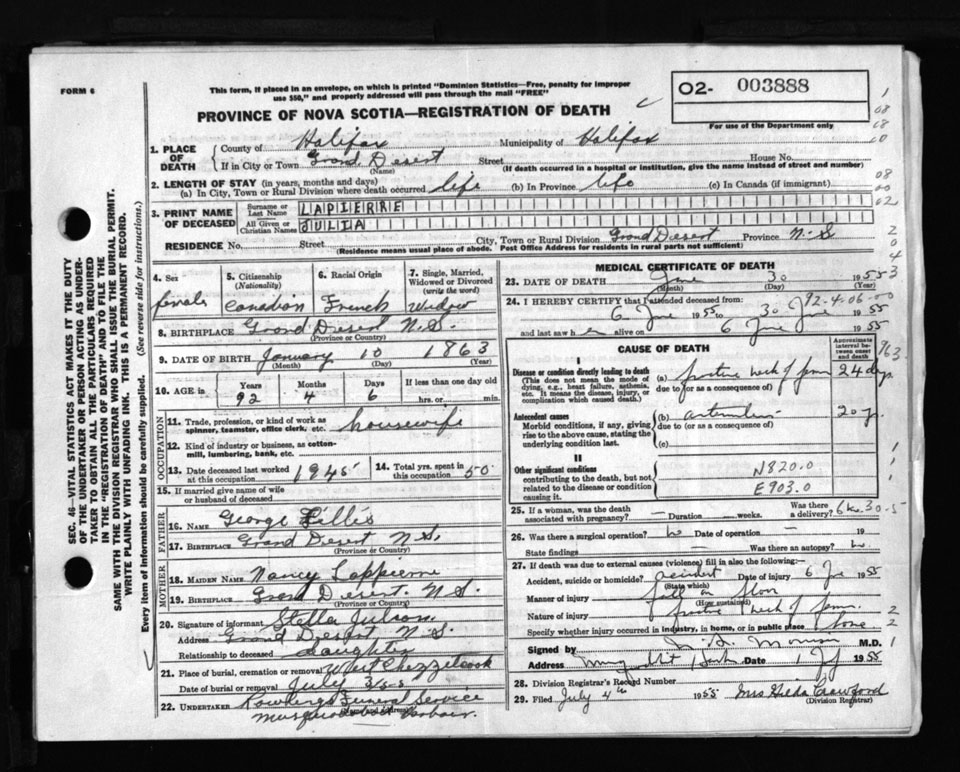 FORM 6
This form, if placed in an envelope, on which is printed "Dominion Statistics—Free, penalty for improper
use $50," and properly addressed will pass through the mail "FREE"
PROVINCE OF NOVA SCOTIA—REGISTRATION OF DEATH
O2- 003888
For use of the Department only
1. PLACE OF DEATH
County of Halifax Municipality of Halifax
If in City or Town Grand Desert Street House No.
(Name) (If death occurred in a hospital or institution, give the name instead of street and number)
2. LENGTH OF STAY (in years, months and days)
(a) In City, Town or Rural Division where death occurred life (b) In Province life (c) In Canada (if immigrant)
3. PRINT NAME OF DECEASED
Surname or Last Name LAPIERRE
All Given or Christian Names JULIA
RESIDENCE No. Street City, Town or Rural Division Grand Desert Province N.S
(Residence means usual place of abode. Post Office Address for residents in rural parts not sufficient)
4. Sex female
5. Citizenship (Nationality) Canadian
6. Racial Origin French
7. Single, Married, Widowed or Divorced (write the word) Widow
8. BIRTHPLACE Grand Desert N.S.
(Province or Country)
9. DATE OF BIRTH January 10 1863
(Month) (Day) (Year)
10. AGE in Years 92 Months 4 Days 6 If less than one day old hrs. or min.
OCCUPATION
11. Trade, profession, or kind of work as spinner, teamster, office clerk, etc. housewife
12. Kind of industry or business, as cotton-mill, lumbering, bank, etc.
13. Date deceased last worked at this occupation 1945
14. Total yrs. spent in 50
15. If married give name of wife or husband of deceased
FATHER
16. NAME George
17. BIRTHPLACE Grand Desert N.S.
(Province or Country)
MOTHER
18. MAIDEN NAME Nancy
19. BIRTHPLACE Grand Desert. N.S.
(Province or Country)
20. Signature of informant Stella
Address Grand Desert N.S.
Relationship to deceased daughter
21. Place of burial, cremation or removal West Chezzetcook
Date of burial or removal July 3/55
22. UNDERTAKER Funeral Service
(Name and Address)
Musquodoboit Harbour.
MEDICAL CERTIFICATE OF DEATH
23. DATE OF DEATH June 30 1955
(Month) (Day) (Year)
24. I HEREBY CERTIFY that I attended deceased from:
92-4-06-00
6 June 1955 to 30 June 1955
and last saw h er alive on 6 June 1955
CAUSE OF DEATH
Approximate interval between onset and death
I
Disease or condition directly leading to death
(This does not mean the mode of dying, e.g., heart failure, asthenia, etc. It means the disease, injury, or complication which caused death.)
(a) neck of femur 24 days
due to (or as a consequence of)
Antecedent causes
Morbid conditions, if any, giving rise to the above cause, stating the underlying condition last.
(b) 20 y.
due to (or as a consequence of)
(c)
II
Other significant conditions
contributing to the death, but not related to the disease or condition causing it.
N820.0
E903.0
25. If a woman, was the death associated with pregnancy? — Duration weeks. Was there a delivery?
26. Was there a surgical operation? no Date of operation — 19
State findings — Was there an autopsy? no
27. If death was due to external causes (violence) fill in also the following:
Accident, suicide or homicide? accident Date of injury 6 June 1955
(State which)
Manner of injury fall on floor
(How sustained)
Nature of injury neck of femur.
Specify whether injury occurred in industry, in home, or in public place home
Signed by M.D.
Address Date 1 1955
28. Division Registrar's Record Number
29. Filed July 4th 1955 Mrs Hilda Crawford
(Division Registrar)
SEC. 46—VITAL STATISTICS ACT MAKES IT THE DUTY
OF THE UNDERTAKER OR PERSON ACTING AS UNDER-
TAKER TO OBTAIN ALL THE PARTICULARS REQUIRED
IN THE "REGISTRATION OF DEATH" AND TO FILE THE
SAME WITH THE DIVISION REGISTRAR WHO SHALL ISSUE THE BURIAL PERMIT.
WRITE PLAINLY WITH UNFADING INK. THIS IS A PERMANENT RECORD.
Every item of information should be carefully supplied. (See reverse side for instructions.)